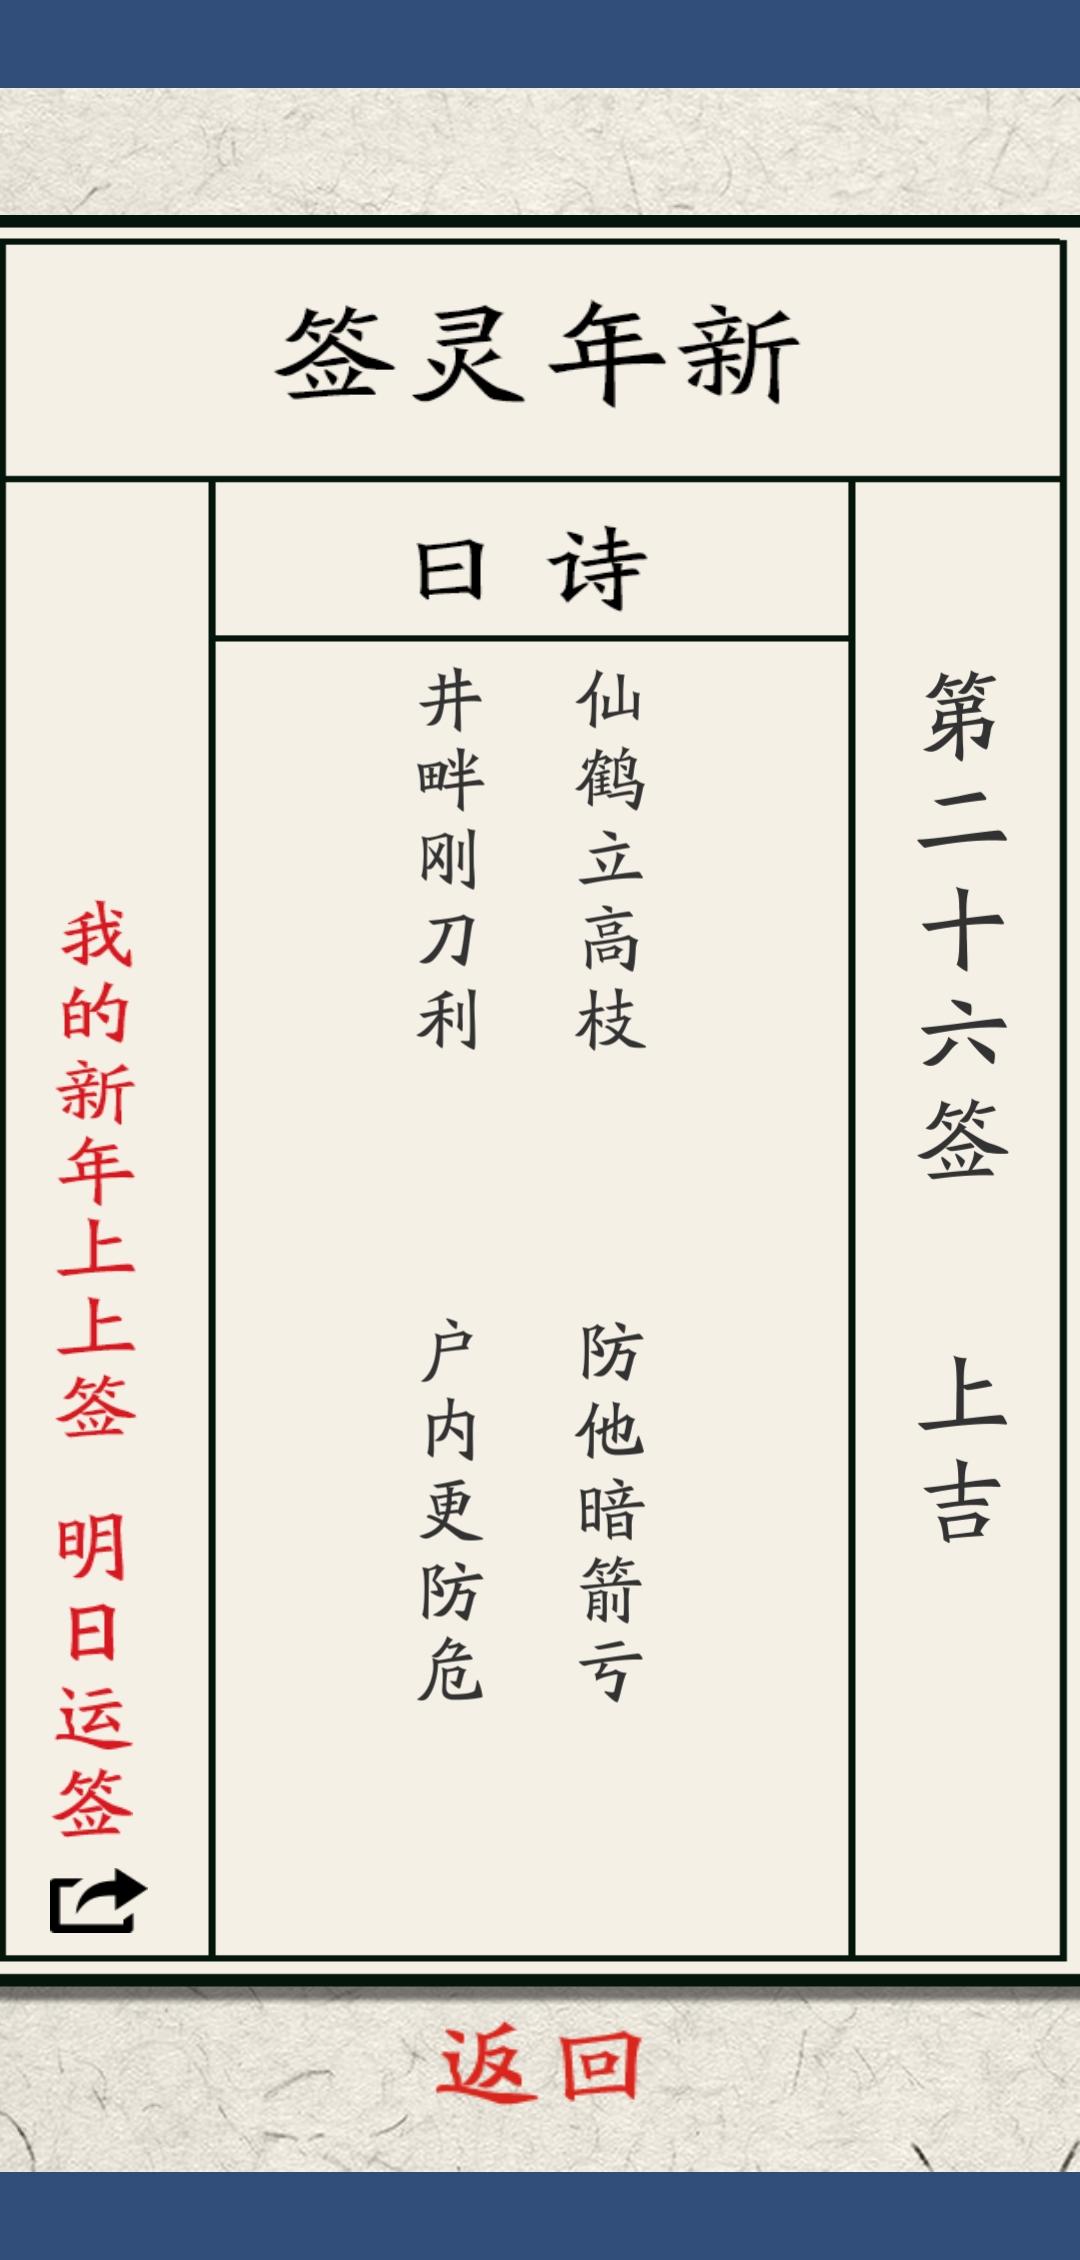 新年灵签
第二十六签 上吉
诗曰
仙鹤立高枝 防他暗箭亏
井畔刚刀利 户内更防危
我的新年上上签 明日运签
返回